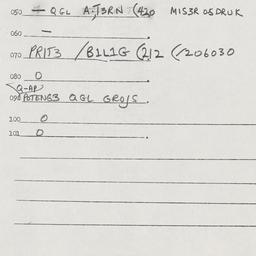 050 — QGL A.T3RN (420 MIS3R OSDRUK
060 —
070 PRIT3 /B1L1G (212 (/206030
080 0
Q-AP
090 POTENG3 QGL GROJS.
100 0
101 0